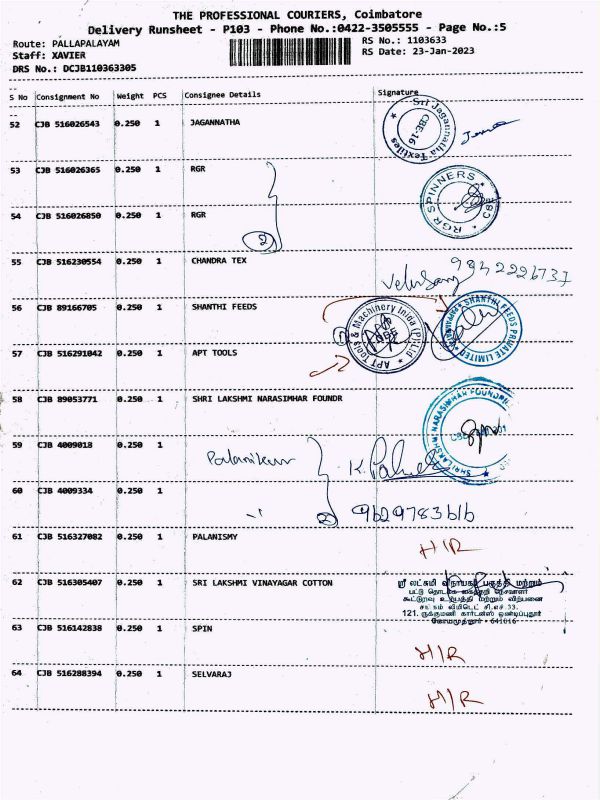 THE PROFESSIONAL COURIERS, Coimbatore
Delivery Runsheet - P103 - Phone No.:0422-3505555 - Page No.:5
Route: PALLAPALAYAM
RS No.: 1103633
Staff: XAVIER
RS Date: 23-Jan-2023
DRS No.: DCJB110363305
S No Consignment No Weight PCS Consignee Details Signature
52 CJB 516026543 0.250 1 JAGANNATHA
Sri Jagannatha Textiles CBE-16
53 CJB 516026365 0.250 1 RGR
RGR SPINNERS CBE
54 CJB 516026850 0.250 1 RGR
2
55 CJB 516230554 0.250 1 CHANDRA TEX
9842226737
56 CJB 89166705 0.250 1 SHANTHI FEEDS
SHANTHI FEEDS PRIVATE LIMITED
APT Tools & Machinery India (P) Ltd
57 CJB 516291042 0.250 1 APT TOOLS
58 CJB 89053771 0.250 1 SHRI LAKSHMI NARASIMHAR FOUNDR
SHRI LAKSHMI NARASIMHAR FOUNDR
59 CJB 4009018 0.250 1
60 CJB 4009334 0.250 1
2 9629783616
61 CJB 516327082 0.250 1 PALANISMY
H/R
62 CJB 516305407 0.250 1 SRI LAKSHMI VINAYAGAR COTTON
ஸ்ரீ லட்சுமி விநாயகர் பருத்தி மற்றும்
கூட்டுறவு உற்பத்தி மற்றும் விற்பனை
கோயமுத்தூர் - 641016
63 CJB 516142838 0.250 1 SPIN
H/R
64 CJB 516288394 0.250 1 SELVARAJ
H/R